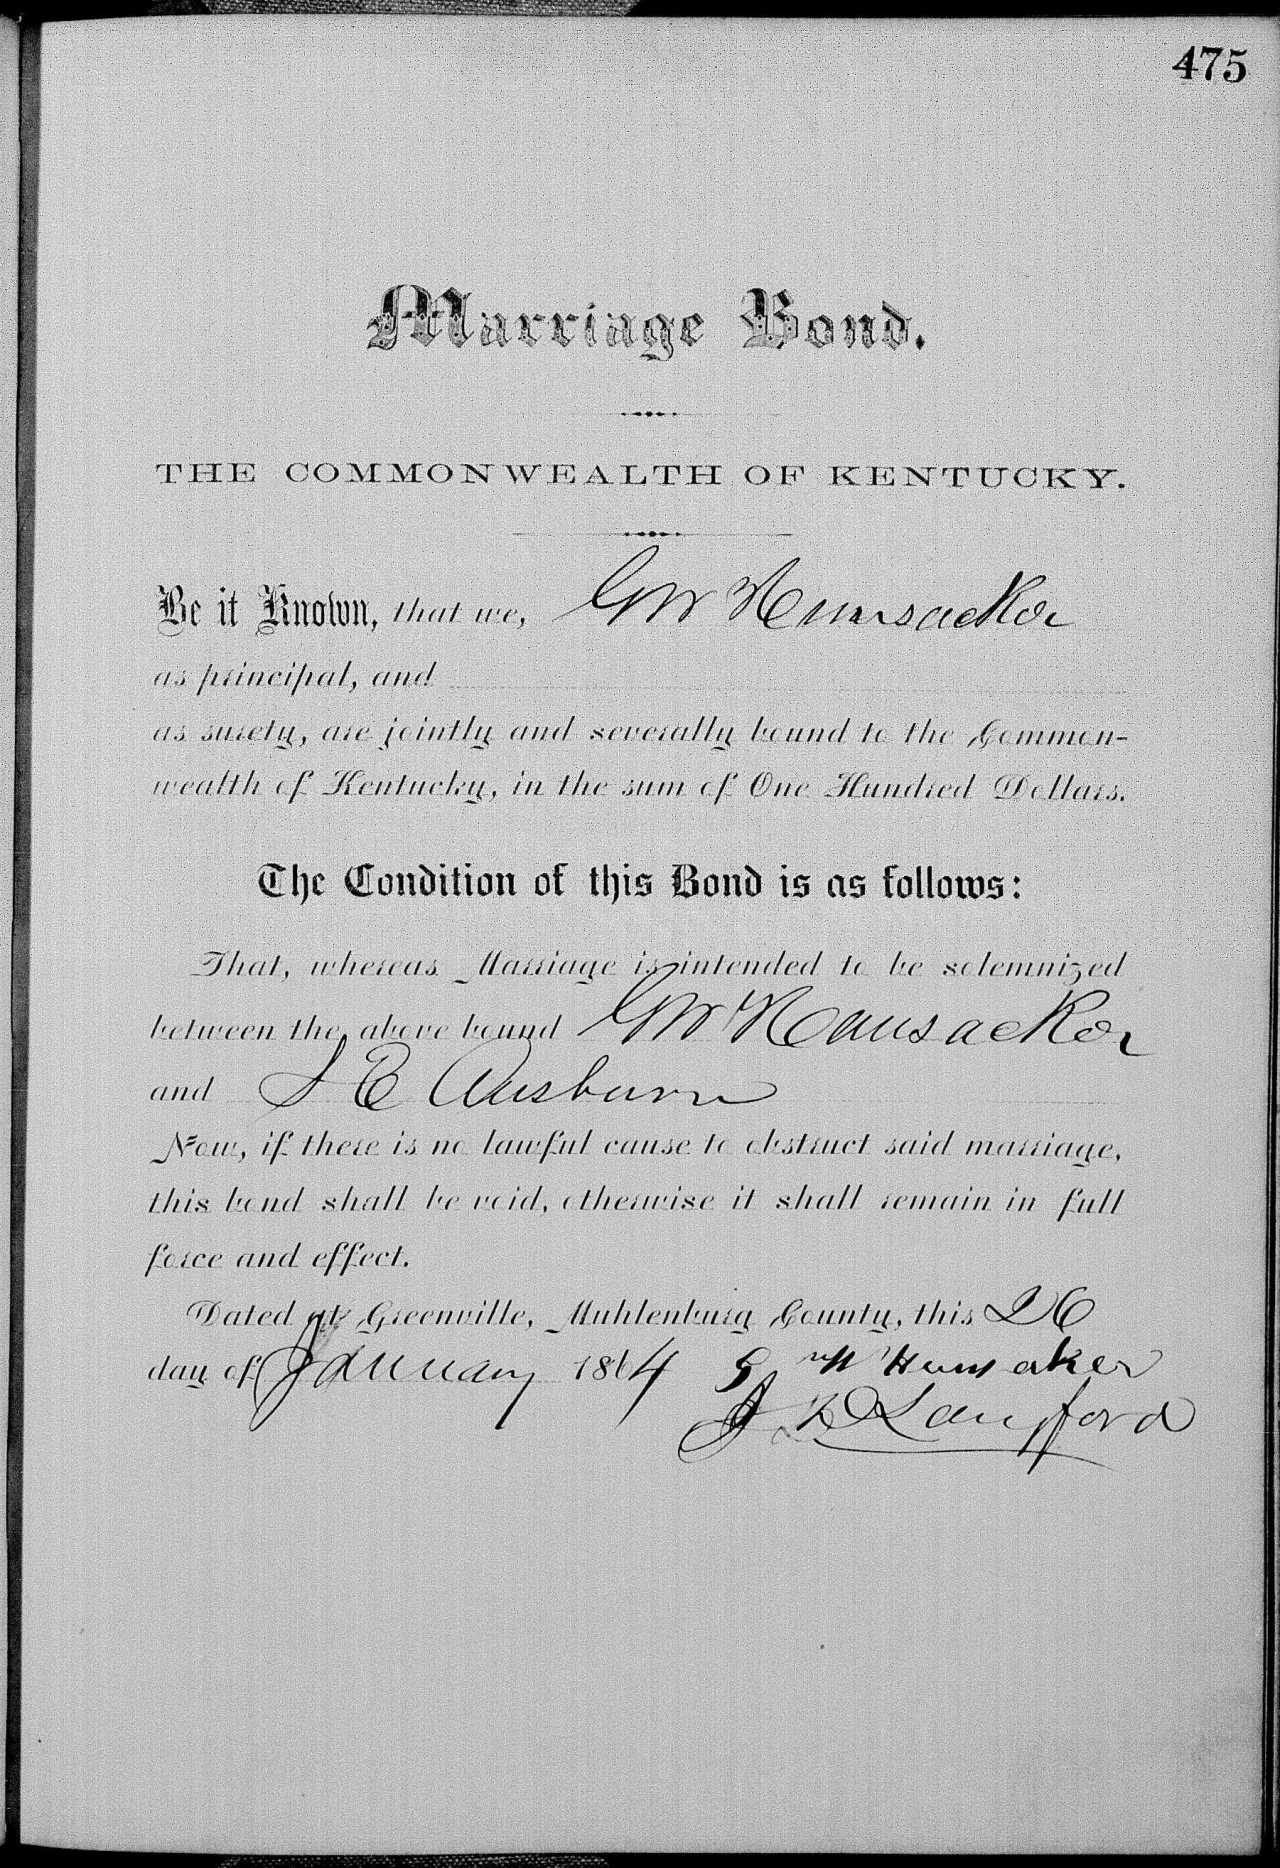 475
Marriage Bond.
THE COMMONWEALTH OF KENTUCKY.
Be it Known, that we, GW Hunsacker
as principal, and
as surety, are jointly and severally bound to the Common-
wealth of Kentucky, in the sum of One Hundred Dollars.
The Condition of this Bond is as follows:
That, whereas Marriage is intended to be solemnized
between the above bound GW Hunsacker
and S E Ausburn
Now, if there is no lawful cause to obstruct said marriage,
this bond shall be void, otherwise it shall remain in full
force and effect.
Dated at Greenville, Muhlenburg County, this 26
day of January 1864 G W Hunsaker
Langford